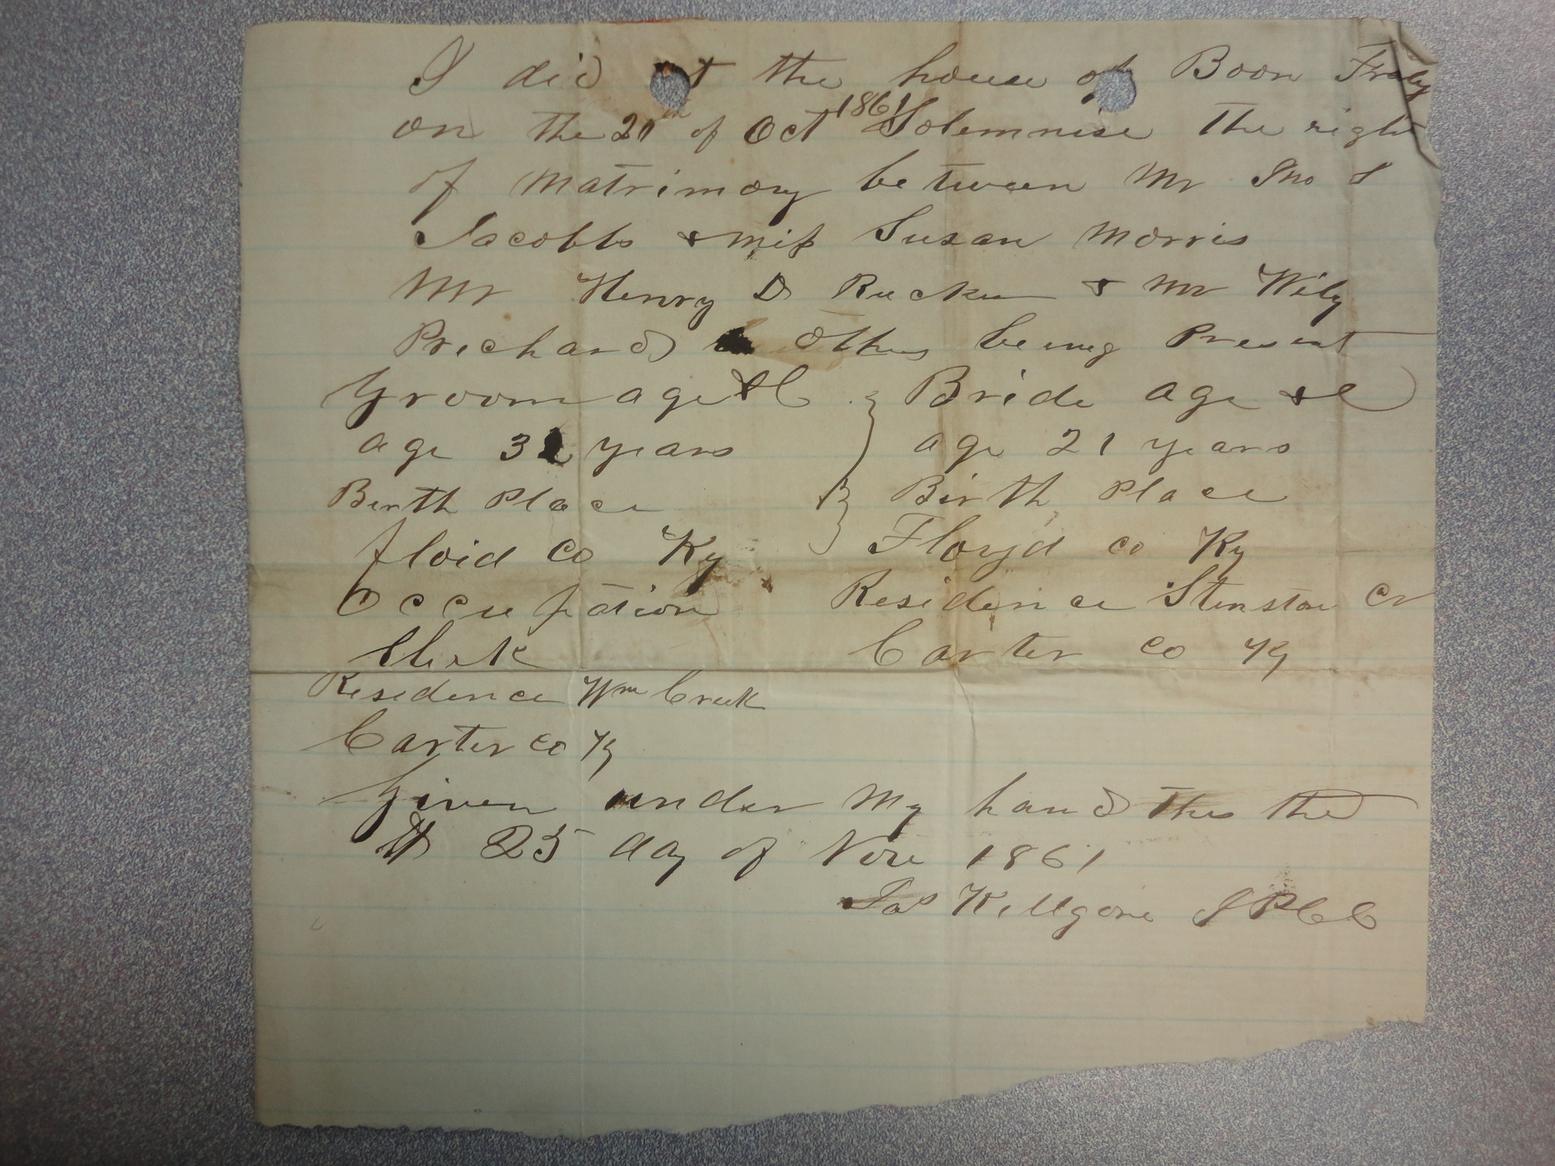 I did at the house of Boon Fraly
on the 21 of Oct 1861 Solemnise The right
of Matrimony between Mr Jno S
Jacobbs & miss Susan Morris
Mr Henry D Rucker & Mr Wily
Prichard & others being Present
Groom age &C Bride age &C
age 3 years age 21 years
Berth Place Birth Place
floid co Ky Floyd co Ky
Occupation Residence Stinston Cr
Clerk Carter co Ky
Residence Wm Creek
Carter co Ky
Given under My hand This the
25 day of Nov 1861
Jas Killgore J P C C